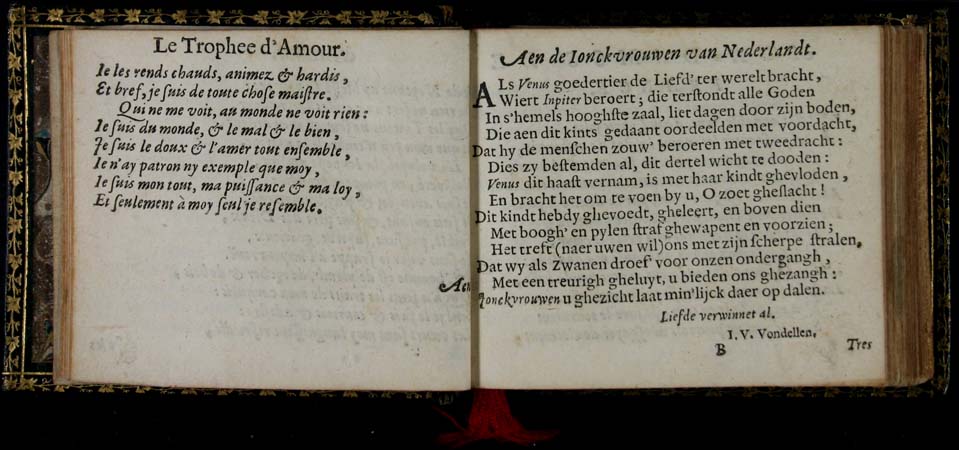 Le Trophee d'Amour.
Ie les rends chauds, animez & hardis,
Et bref, je suis de toute chose maistre.
Qui ne me voit, au monde ne voit rien:
Ie suis du monde, & le mal & le bien,
Je suis le doux & l'amer tout ensemble,
Ie n'ay patron ny exemple que moy,
Ie suis mon tout, ma puissance & ma loy,
Et seulement à moy seul je resemble.
Aen
Aen de Ionckvrouwen van Nederlandt.
ALs Venus goedertier de Liefd' ter werelt bracht,
Wiert Iupiter beroert; die terstondt alle Goden
In s'hemels hooghste zaal, liet dagen door zijn boden,
Die aen dit kints gedaant oordeelden met voordacht,
Dat hy de menschen zouw' beroeren met tweedracht:
Dies zy bestemden al, dit dertel wicht te dooden:
Venus dit haast vernam, is met haar kindt ghevloden,
En bracht het om te voen by u, O zoet gheslacht!
Dit kindt hebdy ghevoedt, gheleert, en boven dien
Met boogh' en pylen straf ghewapent en voorzien;
Het treft (naer uwen wil) ons met zijn scherpe stralen,
Dat wy als Zwanen droef voor onzen ondergangh,
Met een treurigh gheluyt, u bieden ons ghezangh:
Jonckvrouwen u ghezicht laat min'lijck daer op dalen.
Liefde verwinnet al.
I. V. Vondellen.
B
Tres